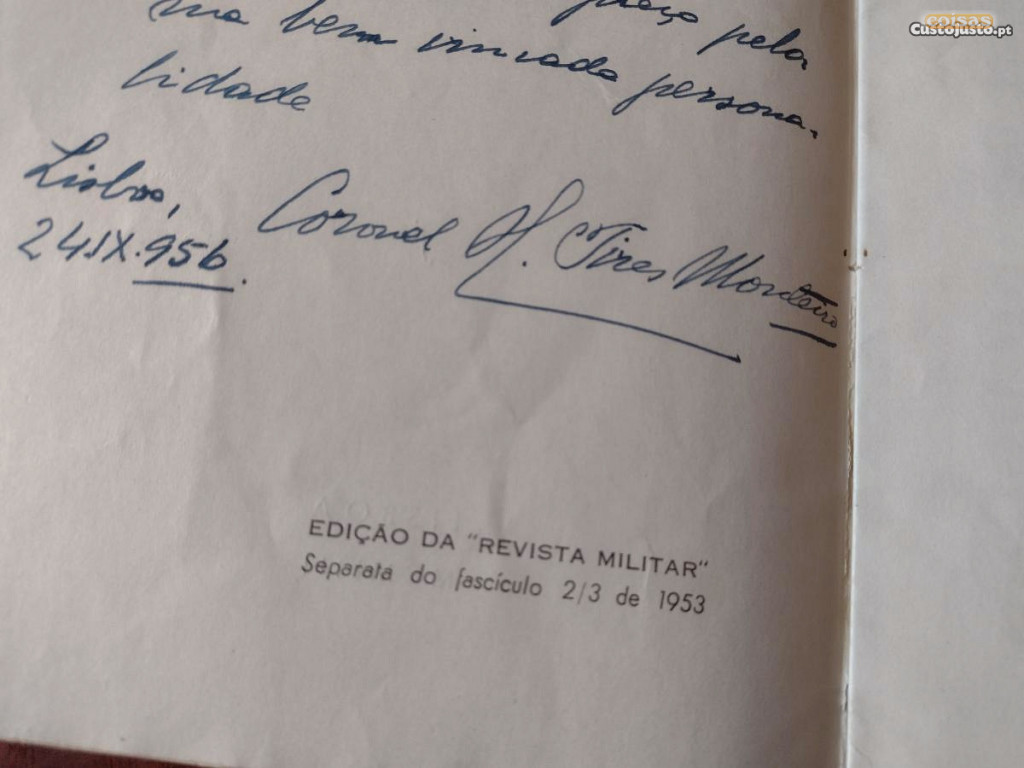 coisas
Custojusto.pt
pela
sua bem vincada persona-
lidade
Lisboa,
24.IX.956.
Coronel H. Pires Monteiro
EDIÇÃO DA "REVISTA MILITAR"
Separata do fascículo 2/3 de 1953